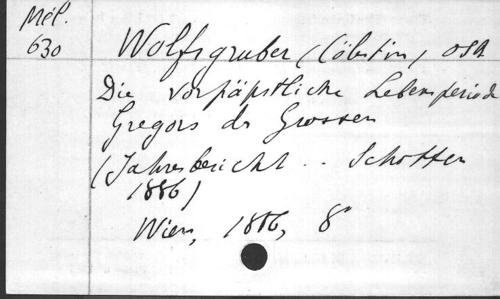 Mél.
630
Wolfsgruber (Cölestin) OSB
Die vorpäpstliche Lebensperiode
Gregors des Grossen
(Jahresbericht .. Schotten
1886)
Wien, 1886, 8°